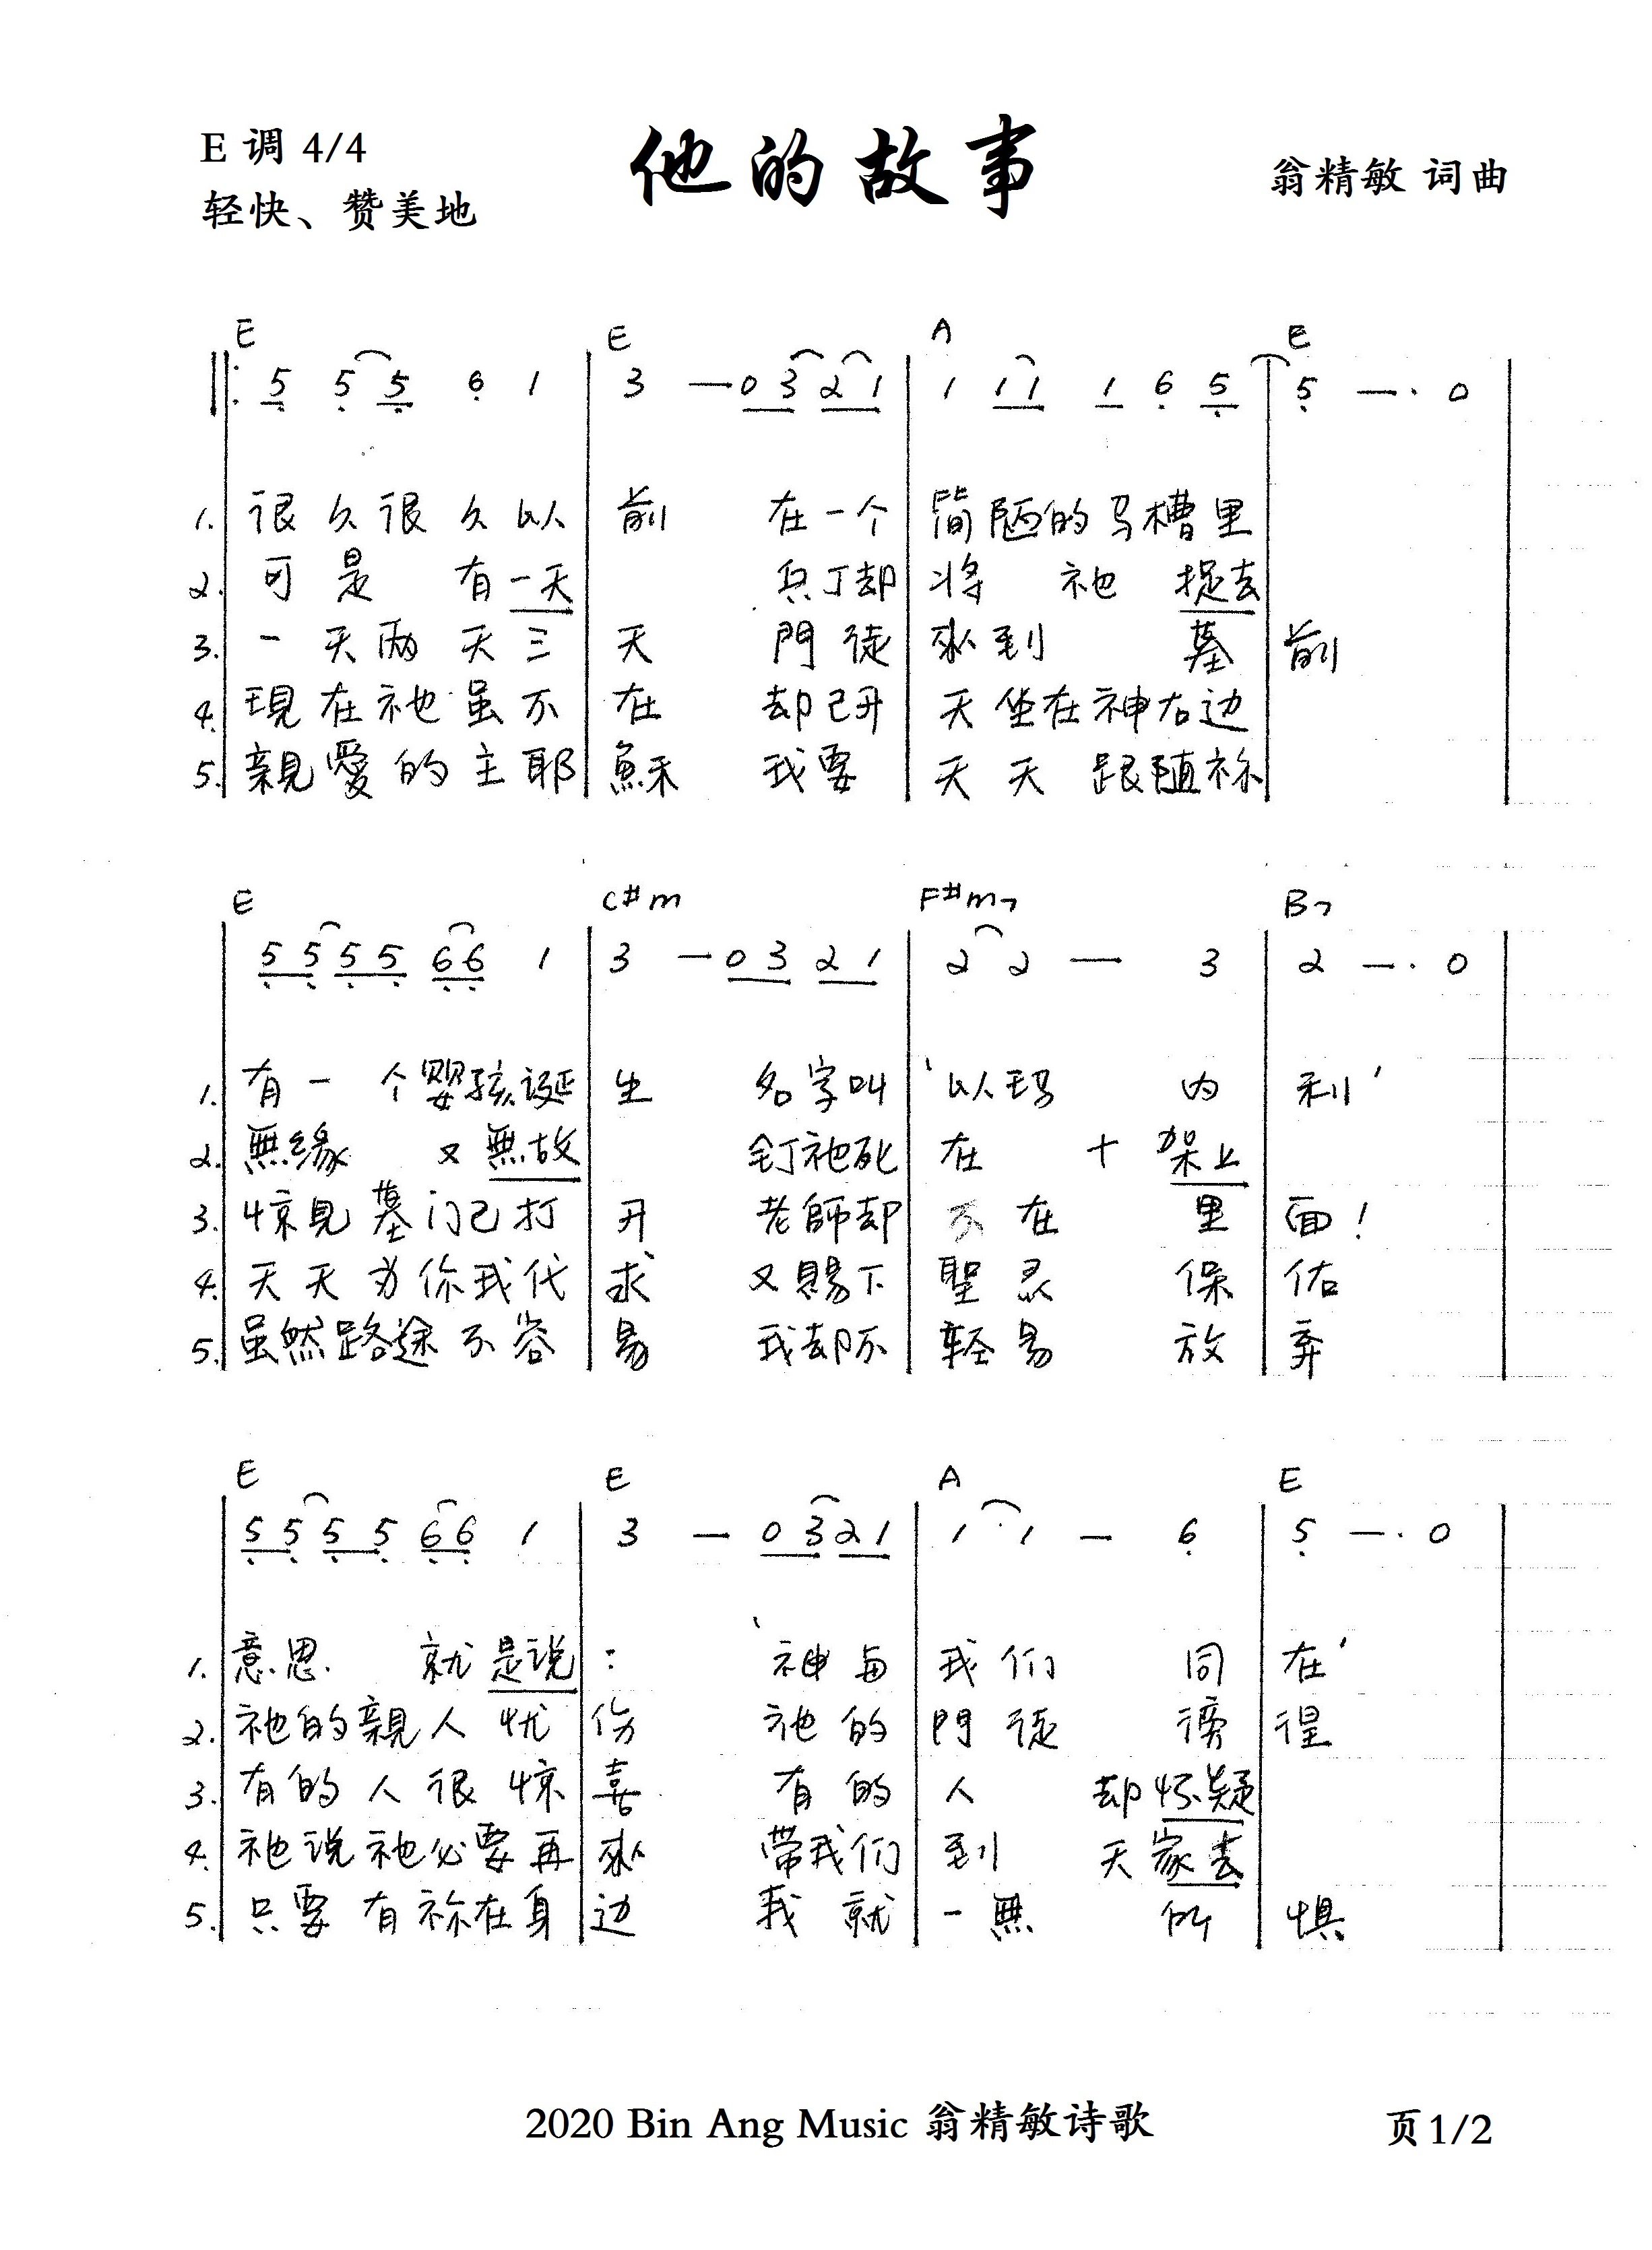 E 调 4/4
他的故事
翁精敏 词曲
轻快、赞美地
E E A E
5 5 5 6 1 3 — 0 3 2 1 1 1 1 1 6 5 5 — · 0
1. 很久很久以前 在一个簡陋的马槽里
2. 可是 有一天 兵丁却将 祂 捉去
3. 一天兩天三天 門徒來到 墓前
4. 現在祂虽不在 却已升天坐在神右边
5. 親愛的主耶穌 我要天天跟随祢
E C#m F#m7 B7
5 5 5 5 6 6 1 3 — 0 3 2 1 2 2 — 3 2 — · 0
1. 有一个婴孩诞生 名字叫‘以玛内利’
2. 無缘 又無故 釘祂死在 十架上
3. 惊見墓门已打开 老師却不在里面！
4. 天天为你我代求 又賜下聖灵保佑
5. 虽然路途不容易 我却不輕易放弃
E E A E
5 5 5 5 6 6 1 3 — 0 3 2 1 1 1 — 6 5 — · 0
1. 意思 就是说： ‘神与我们同在’
2. 祂的親人忧伤 祂的門徒徬徨
3. 有的人很惊喜 有的人 却怀疑
4. 祂说祂必要再來 带我们到 天家去
5. 只要有祢在身边 我就一無所惧
2020 Bin Ang Music 翁精敏诗歌
页 1/2